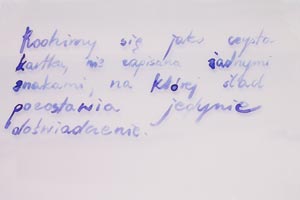 Rodzimy się jako czysta
kartka, nie zapisana żadnymi
znakami, na której ślad
pozostawia jedynie
doświadczenie.